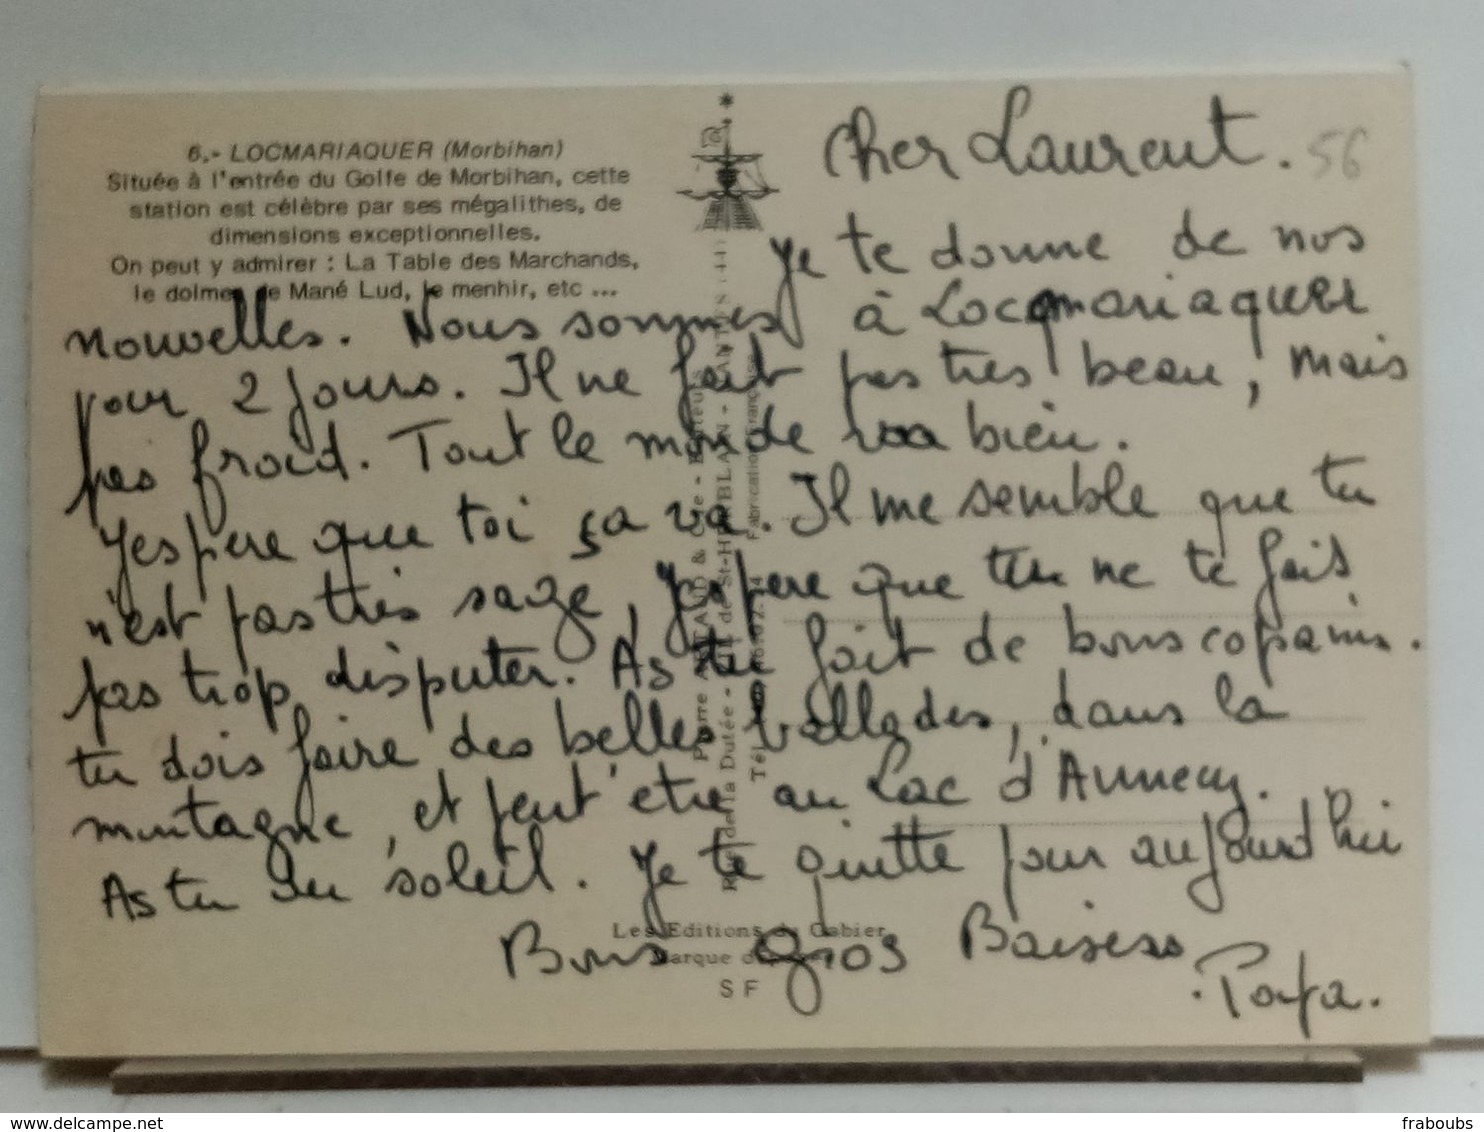 6.- LOCMARIAQUER (Morbihan)
Située à l'entrée du Golfe de Morbihan, cette
station est célèbre par ses mégalithes, de
dimensions exceptionnelles.
On peut y admirer : La Table des Marchands,
le dolmen de Mané Lud, le menhir, etc ...
Cher Laurent.
56
Je te donne de nos
nouvelles. Nous sommes à Locmariaquer
pour 2 jours. Il ne fait pas très beau, mais
pas froid. Tout le monde va bien.
J'espère que toi ça va. Il me semble que tu
n'est pas très sage, J'espère que tu ne te fais
pas trop disputer. As tu fait de bons copains.
tu dois faire des belles ballades, dans la
montagne, et peut'être au Lac d'Annecy.
As tu du soleil. Je te quitte pour aujourd'hui
Bons gros Baisers
Papa.
Pierre ARTAUD & Cie - Editeurs
Rue de la Dutée - St-HERBLAIN - NANTES (44)
Tél.
Fabrication Française
Les Editions du Gabier
Marque
SF
Delcampe.net
fraboubs